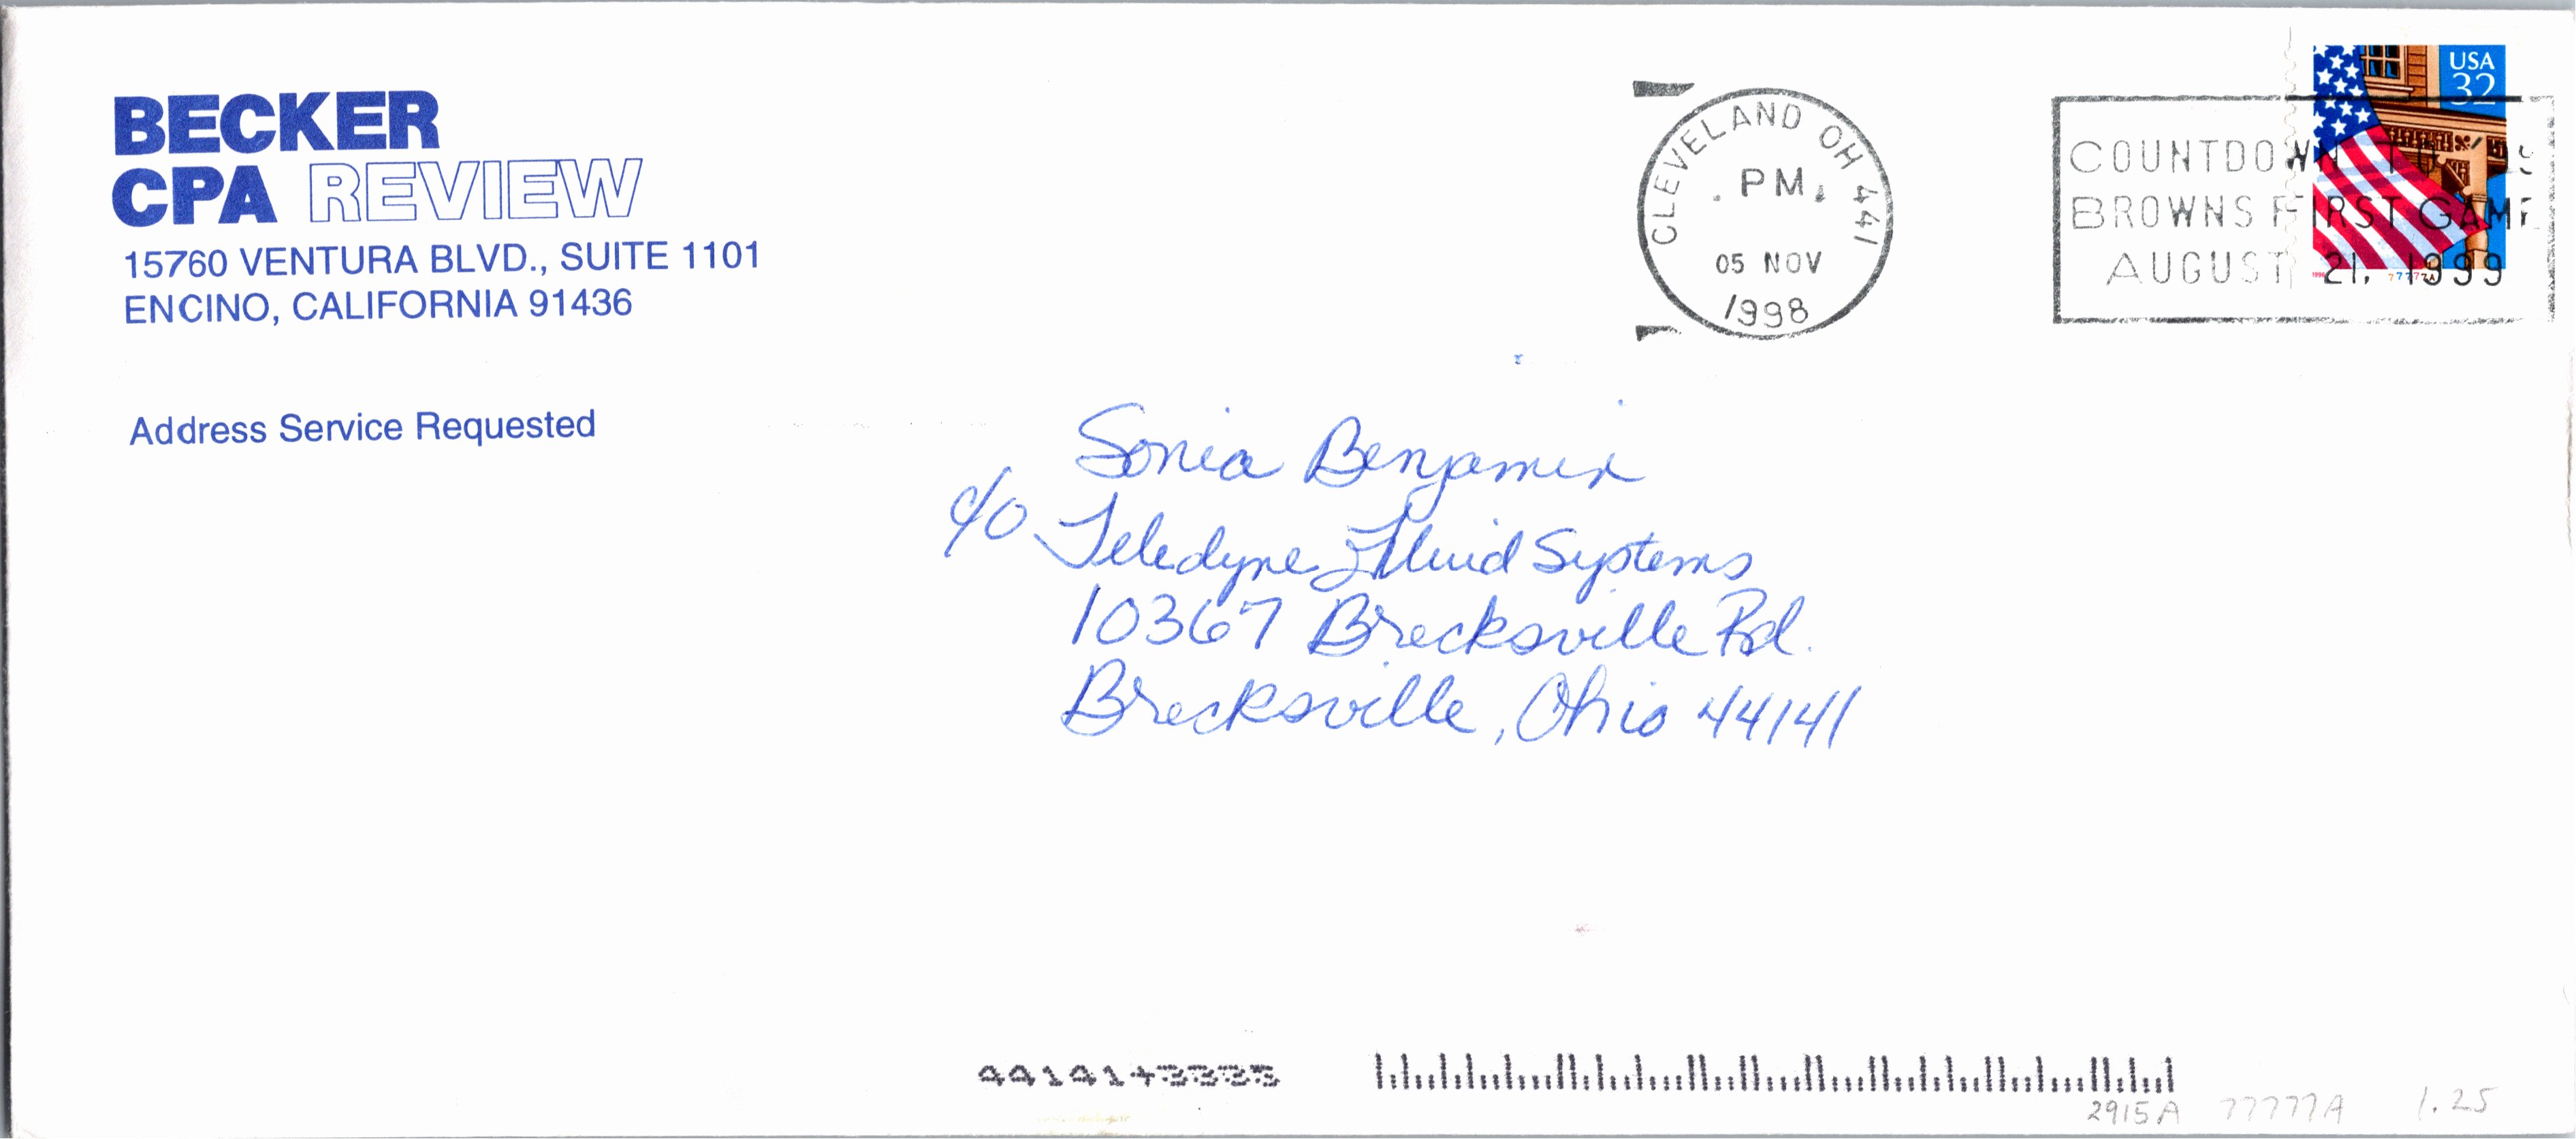 BECKER
CPA REVIEW
15760 VENTURA BLVD., SUITE 1101
ENCINO, CALIFORNIA 91436
Address Service Requested
CLEVELAND OH 441
PM
05 NOV
1998
USA
32
COUNTDOWN TO
BROWNS FIRST GAME
AUGUST 21, 1999
1996
77777A
Sonia Benjamin
c/o Teledyne Fluid Systems
10367 Brecksville Rd.
Brecksville, Ohio 44141
44141+3333
2915A 77777A 1.25